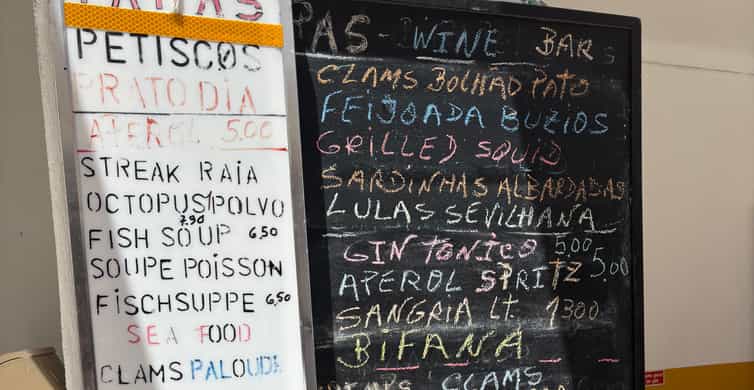 TAPAS
PETISCOS
PRATO DIA
APEROL 5.00
STREAK RAIA
OCTOPUS/POLVO
7,90
FISH SOUP 6,50
SOUPE POISSON
FISCHSUPPE 6,50
SEA FOOD
CLAMS PALOUDE
PAS - WINE BAR
CLAMS BOLHÃO PATO
FEIJOADA BUZIOS
GRILLED SQUID
SARDINHAS ALBARDADAS
LULAS SEVILHANA
GIN TONICO 5.00
APEROL SPRITZ 5.00
SANGRIA LT. 1300
BIFANA
CLAMS